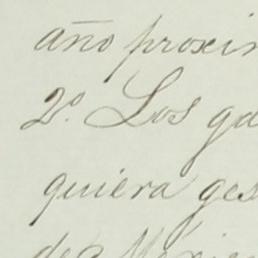 año proxim
2º. Los ga
quiera ges
de Mexico